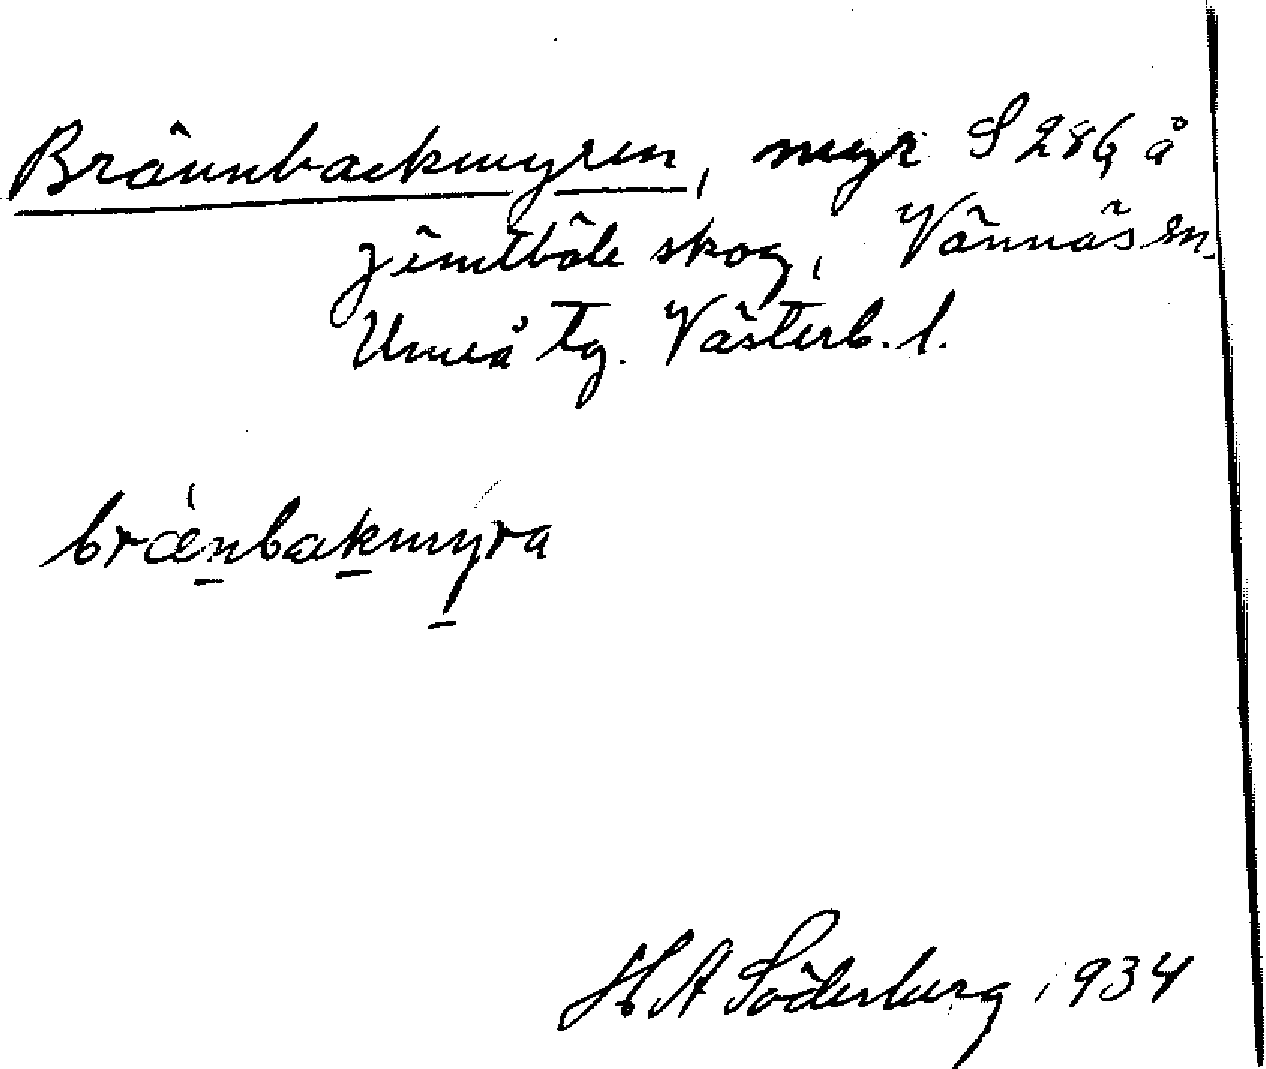 Brännbackmyren, myr S 286 å
Jämtböle skog, Vännäs sn.
Umeå tg. Västerb. l.
brænbakmyra
H A Söderberg 1934